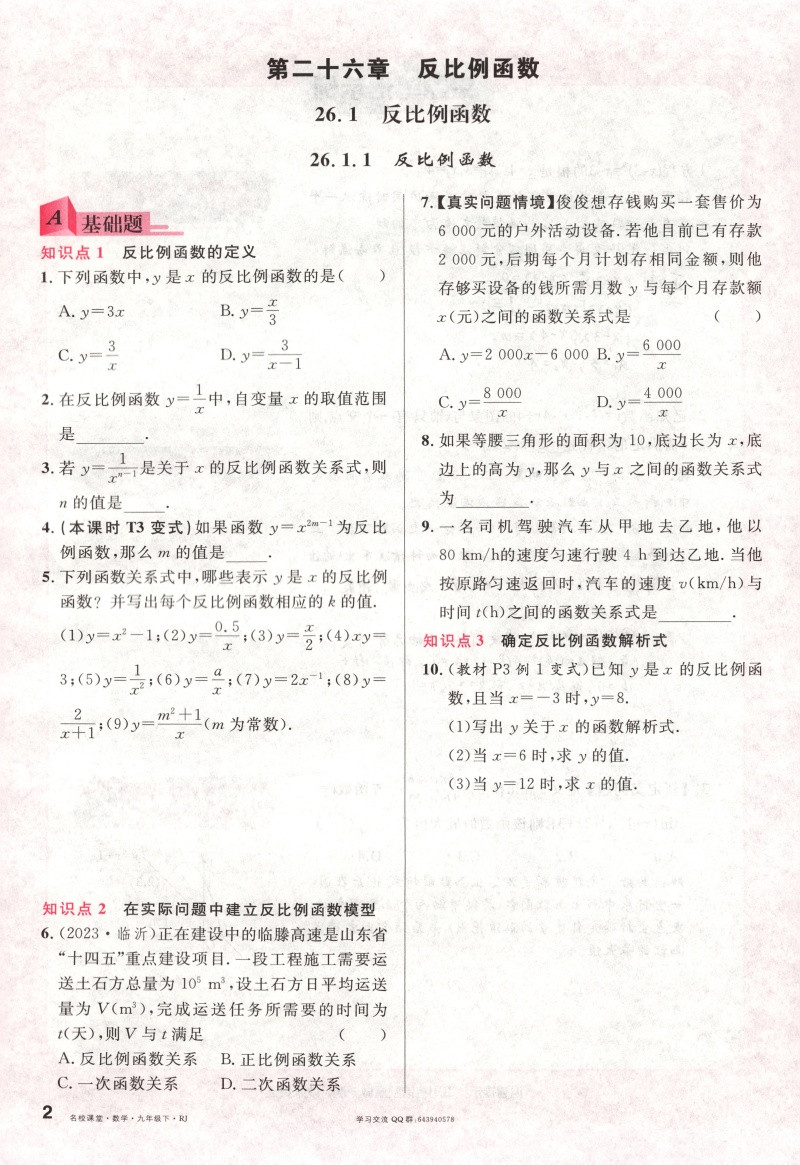 第二十六章 反比例函数
26.1 反比例函数
26.1.1 反比例函数
A 基础题
知识点1 反比例函数的定义
1.下列函数中,y是x的反比例函数的是( )
A. y=3x B. y=x/3
C. y=3/x D. y=3/(x-1)
2.在反比例函数 y=1/x中,自变量x的取值范围
是________.
3.若 y=1/xⁿ⁻¹是关于x的反比例函数关系式,则
n的值是_____.
4.(本课时T3变式)如果函数 y=x²ᵐ⁻¹为反比
例函数,那么m的值是_____.
5.下列函数关系式中,哪些表示y是x的反比例
函数?并写出每个反比例函数相应的k的值.
(1)y=x²-1;(2)y=0.5/x;(3)y=x/2;(4)xy=
3;(5)y=1/x²;(6)y=a/x;(7)y=2x⁻¹;(8)y=
2/(x+1);(9)y=(m²+1)/x(m为常数).
知识点2 在实际问题中建立反比例函数模型
6.(2023·临沂)正在建设中的临滕高速是山东省
“十四五”重点建设项目.一段工程施工需要运
送土石方总量为10⁵ m³,设土石方日平均运送
量为V(m³),完成运送任务所需要的时间为
t(天),则V与t满足 ( )
A.反比例函数关系 B.正比例函数关系
C.一次函数关系 D.二次函数关系
7.【真实问题情境】俊俊想存钱购买一套售价为
6 000元的户外活动设备.若他目前已有存款
2 000元,后期每个月计划存相同金额,则他
存够买设备的钱所需月数y与每个月存款额
x(元)之间的函数关系式是 ( )
A. y=2 000x-6 000 B. y=6 000/x
C. y=8 000/x D. y=4 000/x
8.如果等腰三角形的面积为10,底边长为x,底
边上的高为y,那么y与x之间的函数关系式
为________.
9.一名司机驾驶汽车从甲地去乙地,他以
80 km/h的速度匀速行驶4 h到达乙地.当他
按原路匀速返回时,汽车的速度v(km/h)与
时间t(h)之间的函数关系式是________.
知识点3 确定反比例函数解析式
10.(教材P3例1变式)已知y是x的反比例函
数,且当x=-3时,y=8.
(1)写出y关于x的函数解析式.
(2)当x=6时,求y的值.
(3)当y=12时,求x的值.
2 名校课堂·数学·九年级下·RJ
学习交流QQ群:643940578